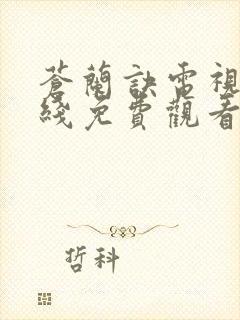 蒼蘭訣電視
綫免費觀看
哲科